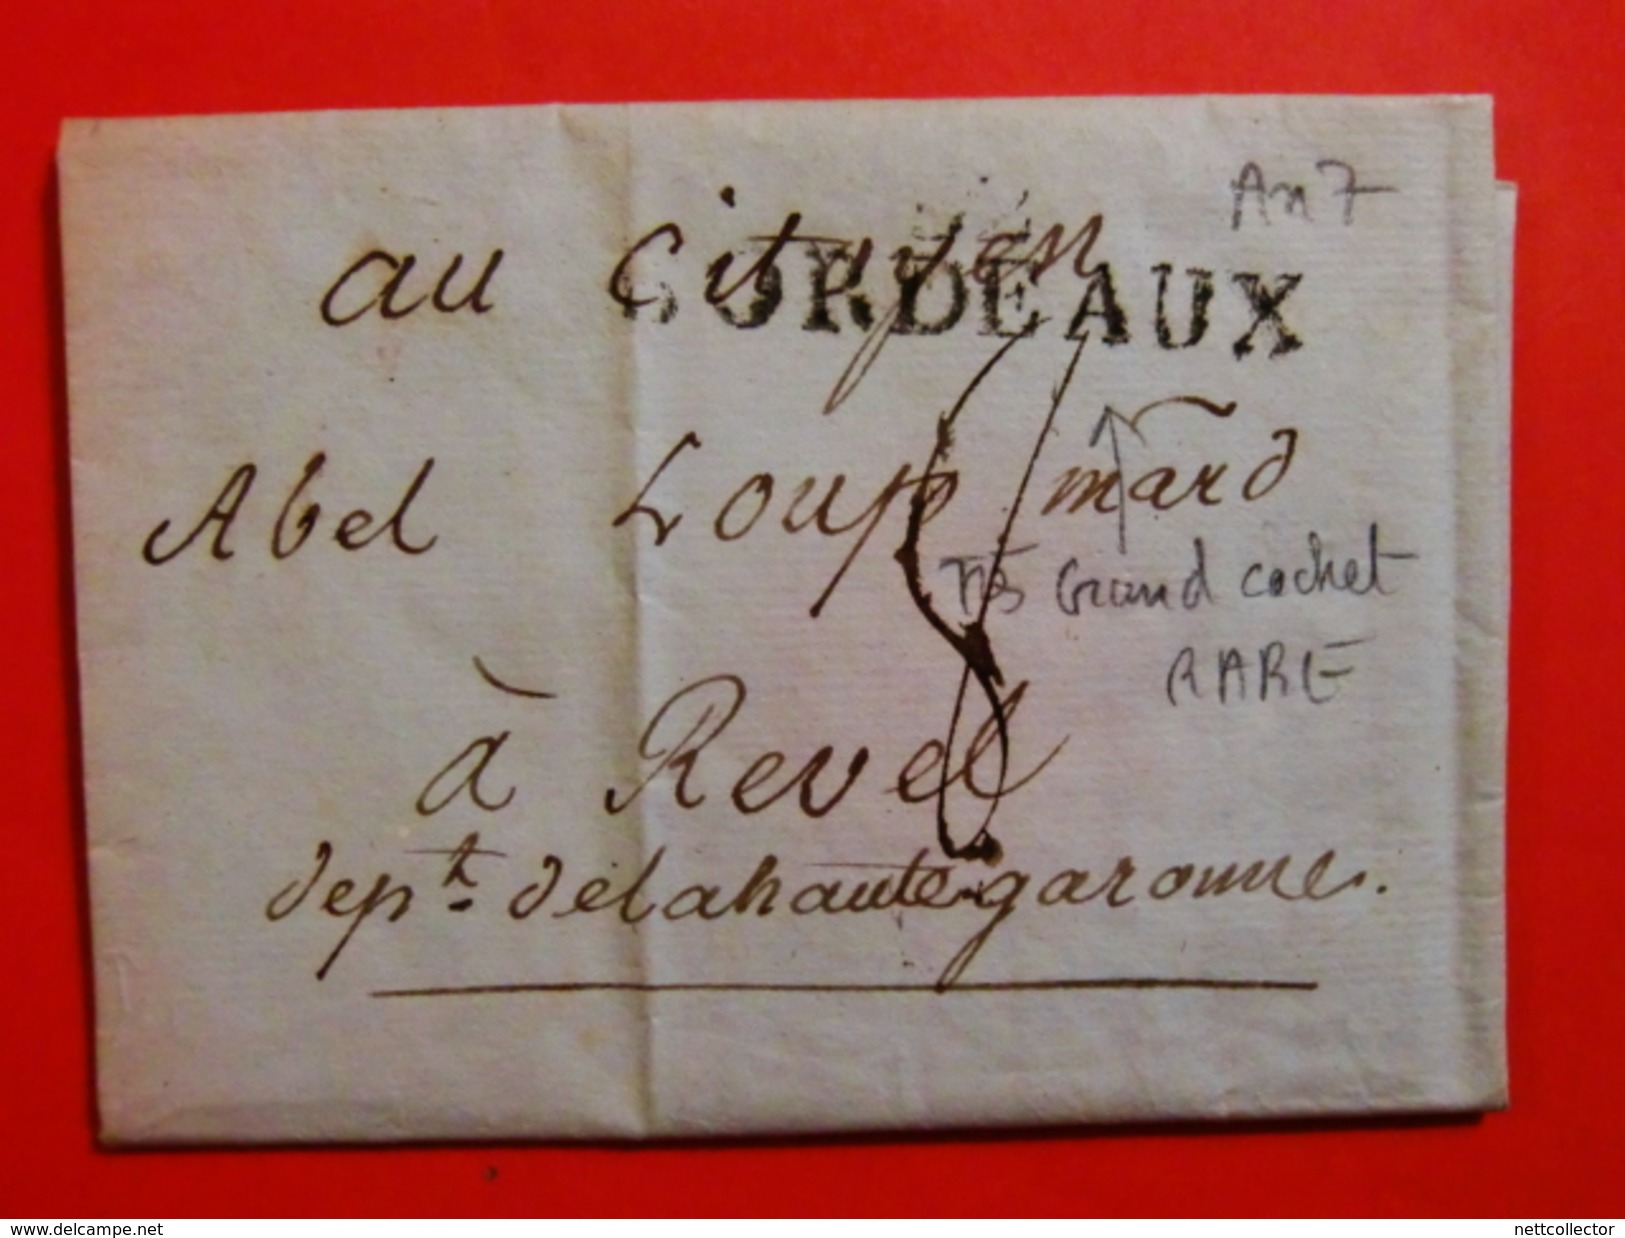 An 7
au Citoyen
BORDEAUX
Abel Loup mard
8
Très Grand cachet
RARE
à Revel
dept. de la haute garonne.
www.delcampe.net
nettcollector